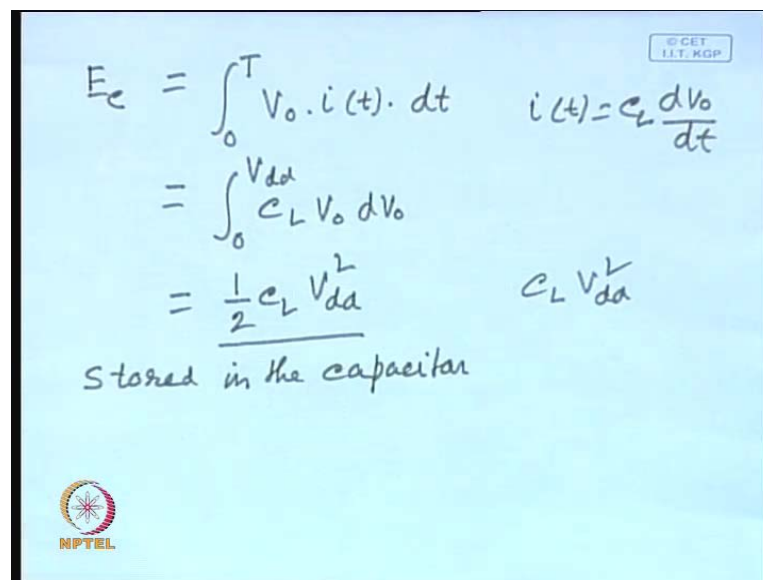 © CET
I.I.T. KGP
E_c = ∫_0^T V_0 . i(t) . dt    i(t) = C_L dV_0/dt
= ∫_0^{Vdd} C_L V_0 dV_0
= 1/2 C_L V_dd^2    C_L V_dd^2
Stored in the capacitor
NPTEL